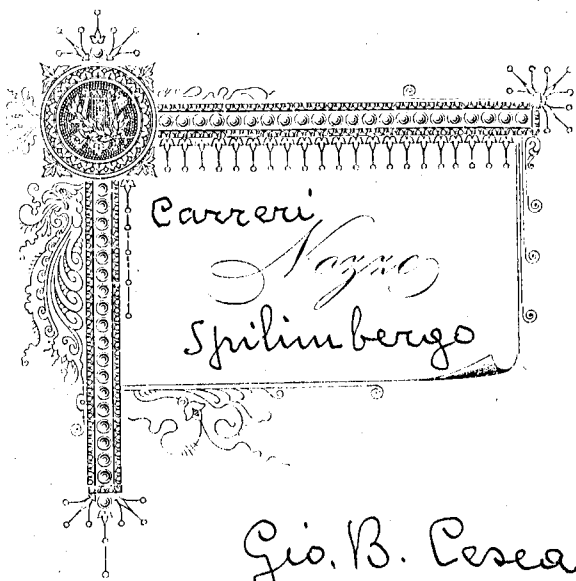 Carreri
Nozze
Spilimbergo
Gio. B. Cesca